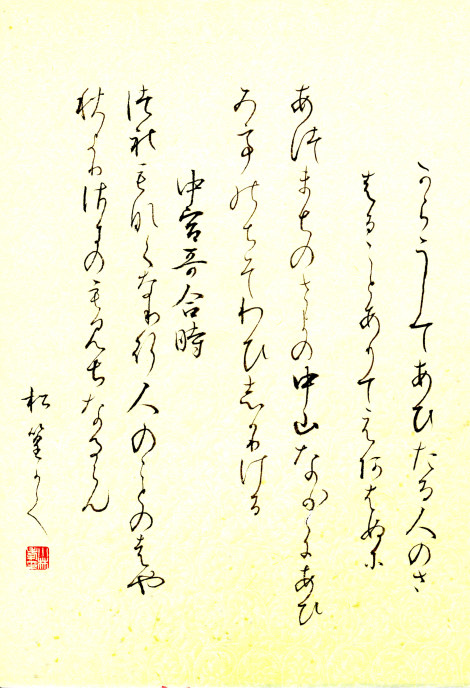 からうしてあひたる人のさ
はることありてえあはぬに
あつまちのさよの中山なか〱にあひ
みてのちそわひしかりける
中宮哥合時
つれもなくなり行人のことのはや
秋よりさきのもみちなるらん
松篁かく